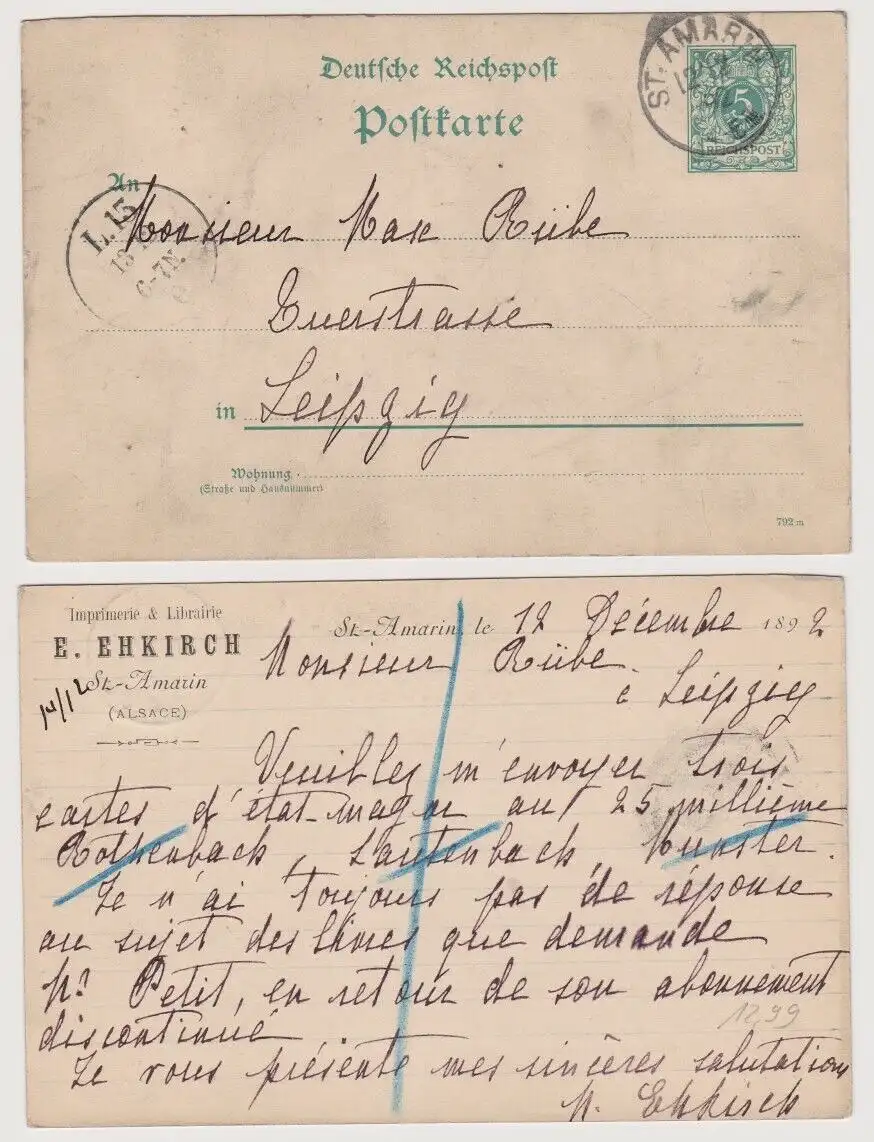 Deutsche Reichspost
Postkarte
ST. AMARIN
12 12
92
5
REICHSPOST
An
L. 13
13
6-7N.
Monsieur Max Rübe
Querstrasse
in Leipzig
Wohnung
(Straße und Hausnummer)
792 m
Imprimerie & Librairie
E. EHKIRCH
St-Amarin
(ALSACE)
14/12
St-Amarin, le 12 Décembre 1892
Monsieur Rübe
à Leipzig
Veuillez m'envoyer trois
cartes d'état-major au 25 millième
Rothenbach, Lautenbach, Munster.
Je n'ai toujours pas de réponse
au sujet des livres que demande
Mr Petit, en retour de son abonnement
discontinué
Je vous présente mes sincères salutations
Ehkirch
12,99